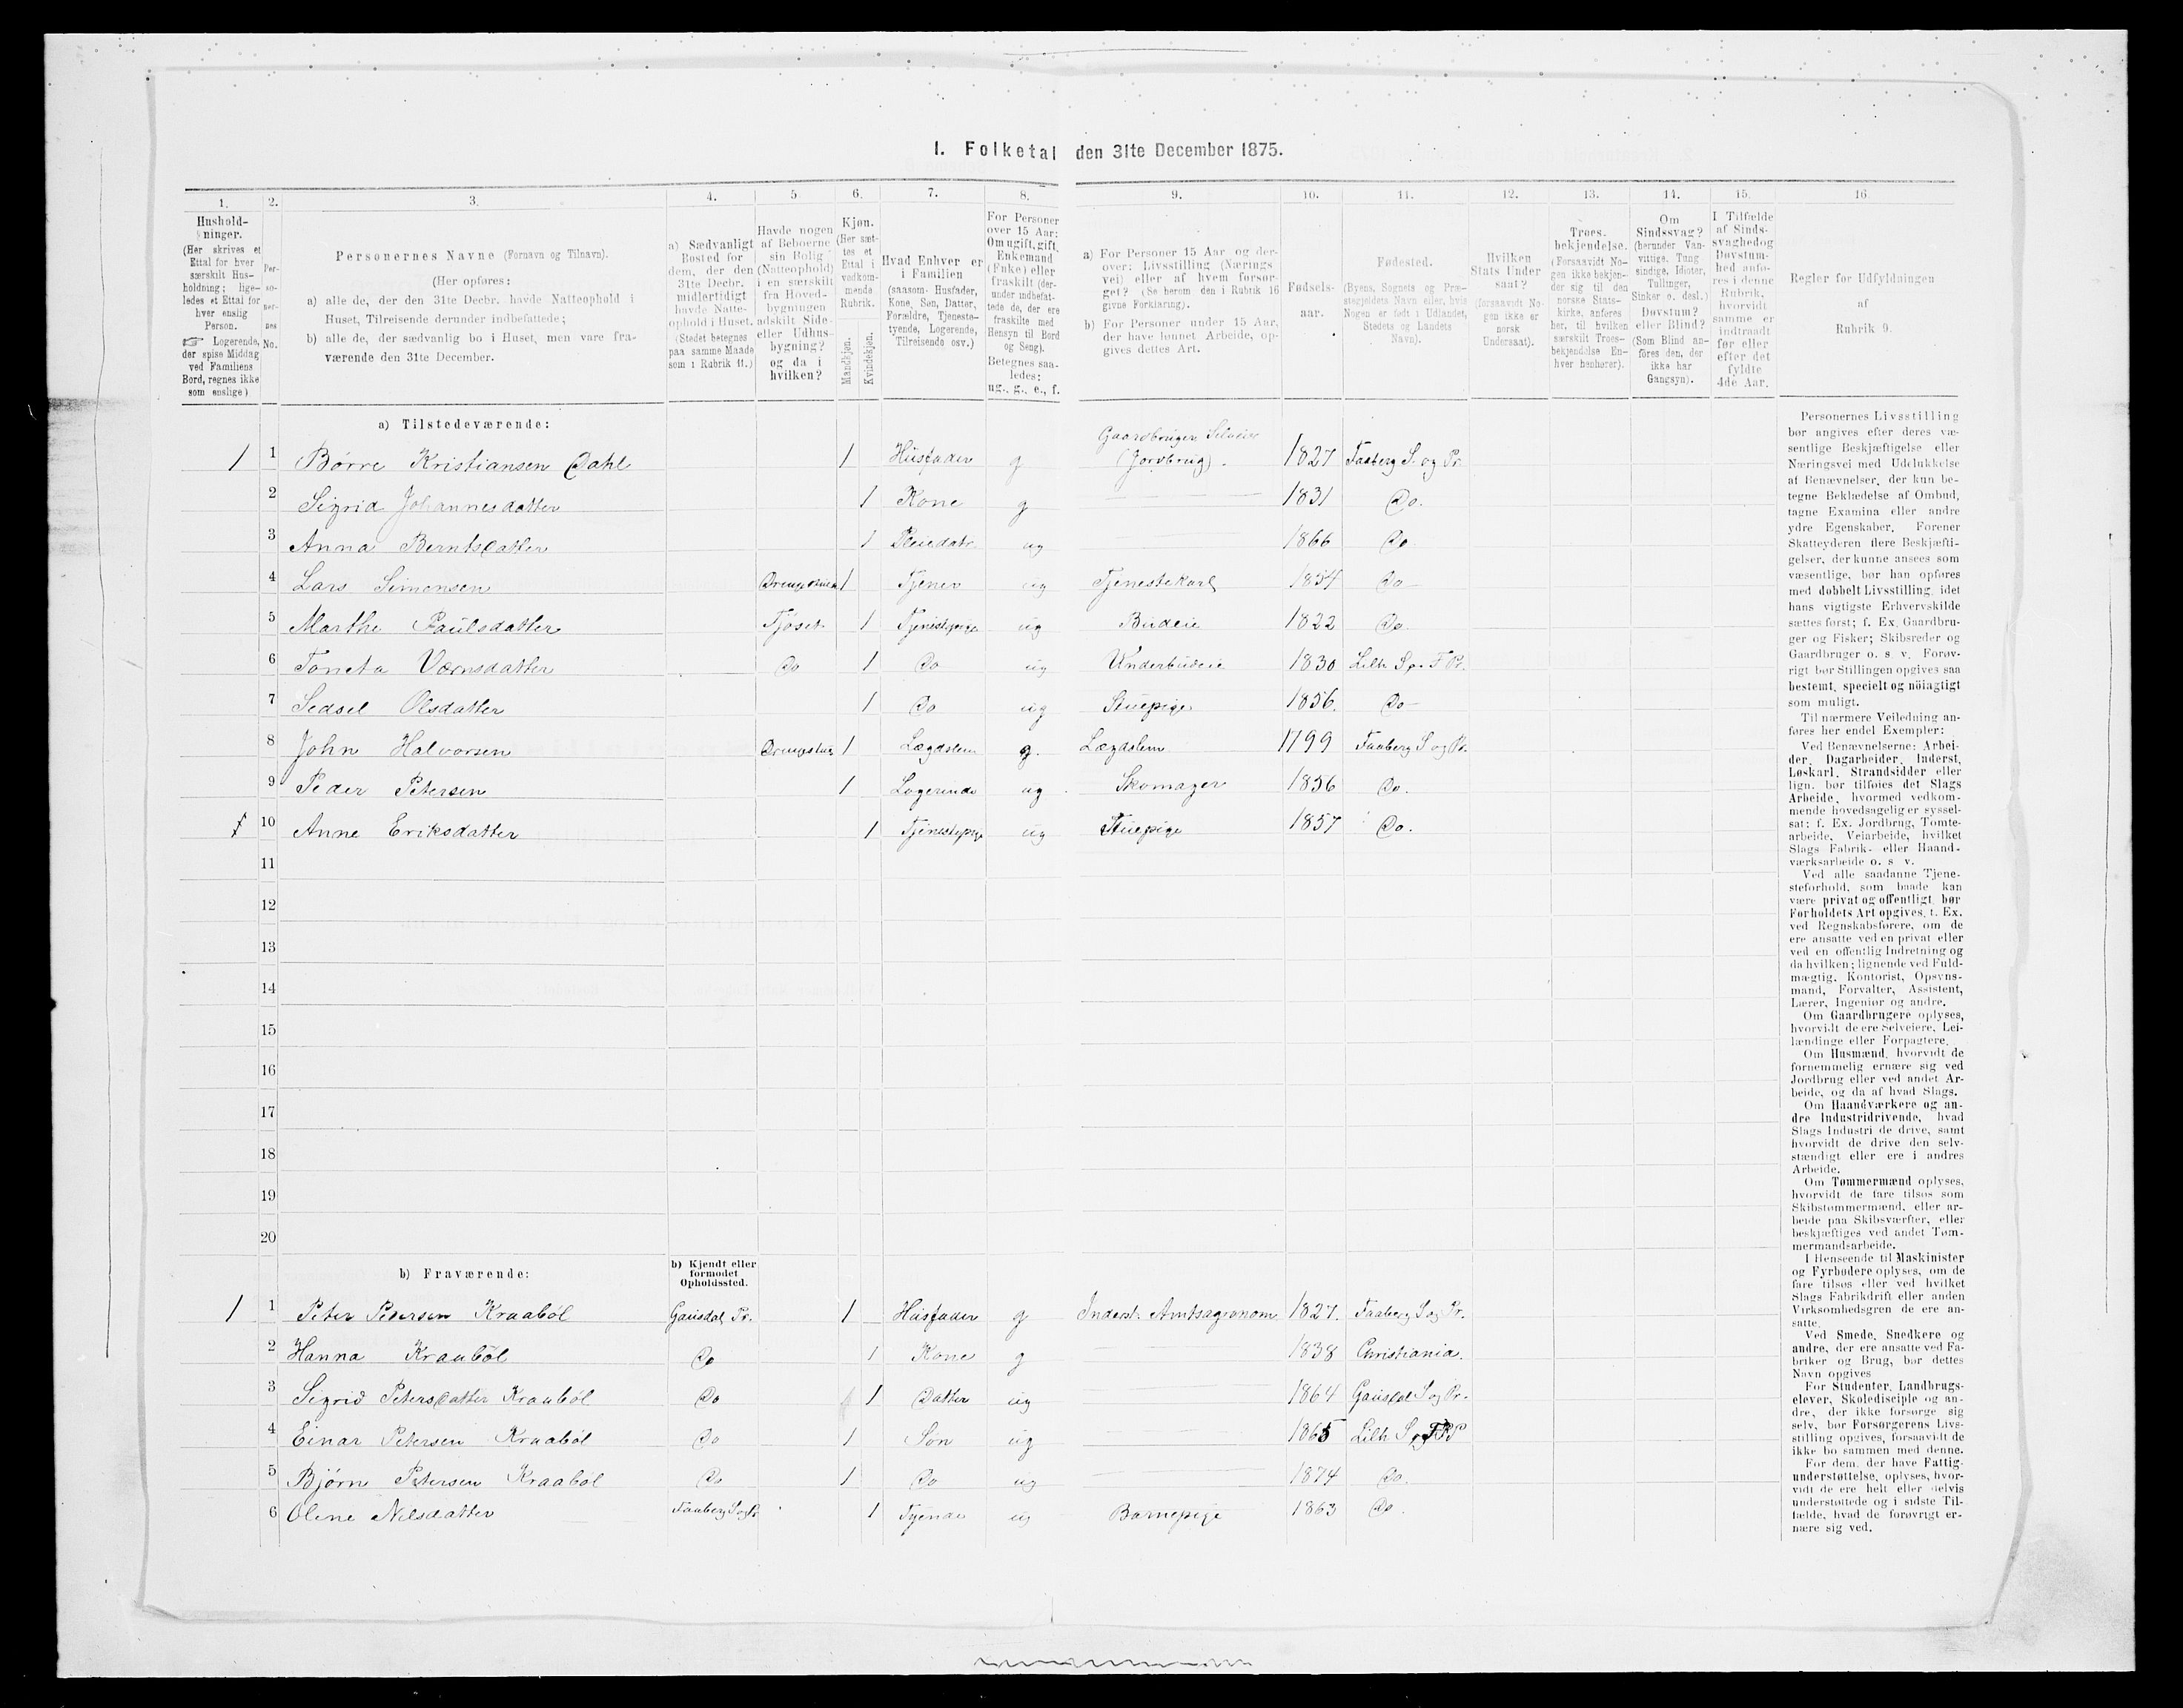 I. Folketal den 31te December 1875.
1. 2. 3. 4. 5 6. 7. 8. 9. 10. 11. 12. 13. 14. 15. 16
Hushold-
ninger.
(Her skrives et
Ettal for hver
særskilt Hus-
holdning; lige-
ledes et Ettal for
hver enslig
Person.
☞ Logerende,
der spise Middag
ved Familiens
Bord, regnes ikke
som enslige)
Per-
so-
ner-
nes
No.
Personernes Navne (Fornavn og Tilnavn).
(Her opføres:
a) alle de, der den 31te Decbr. havde Natteophold i
Huset, Tilreisende derunder indbefattede;
b) alle de, der sædvanlig bo i Huset, men vare fra-
værende den 31te December.
a) Sædvanligt
Bosted for
dem, der den
31te Decbr.
midlertidigt
havde Natte-
ophold i Huset.
(Stedet betegnes
paa samme Maade
som i Rubrik 11.)
Havde nogen
af Beboerne
sin Bolig
(Natteophold)
i en særskilt
fra Hoved-
bygningen
adskilt Side-
eller Udhus-
bygning?
og da i
hvilken?
Kjøn.
(Her sæt-
tes et
Ettal i
vedkom-
mende
Rubrik.
Mandkjøn.
Kvindekjøn.
Hvad Enhver er
i Familien
(saasom: Husfader,
Kone, Søn, Datter,
Forældre, Tjeneste-
tyende, Logerende,
Tilreisende osv.)
For Personer
over 15 Aar:
Om ugift, gift,
Enkemand
(Enke) eller
fraskilt (der-
under indbefat-
tede de, der ere
fraskilte med
Hensyn til Bord
og Seng).
Betegnes saa-
ledes:
ug., g., e., f.
a) For Personer 15 Aar og der-
over: Livsstilling (Nærings
vei) eller af hvem forsør-
get? (Se herom den i Rubrik 16
givne Forklaring).
b) For Personer under 15 Aar,
der have lønnet Arbeide, op-
gives dettes Art.
Fødsels-
aar.
Fødested.
(Byens, Sognets og Præ-
stegjeldets Navn eller, hvis
Nogen er født i Udlandet,
Stedets og Landets
Navn).
Hvilken
Stats Under
saat?
(forsaavidt No-
gen ikke er
norsk
Undersaat).
Troes-
bekjendelse.
(Forsaavidt No-
gen ikke bekjen-
der sig til den
norske Stats-
kirke, anføres
her, til hvilken
særskilt Troes-
bekjendelse En-
hver henhører).
Om
Sindssvag?
(herunder Van-
vittige, Tung
sindige, Idioter,
Tullinger,
Sinker o. desl.)
Døvstum?
eller Blind?
(Som Blind an-
føres den, der
ikke har
Gangsyn).
I Tilfælde
af Sinds-
svaghed og
Døvstum-
hed anfø-
res i denne
Rubrik,
hvorvidt
samme er
indtraadt
før eller
efter det
fyldte
4de Aar.
Regler for Udfyldningen
af
Rubrik 9.
a) Tilstedeværende:
1 1 Børre Kristiansen Dahl 1 Husfader g Gaardbruger Selveier (Jordbrug). 1827 Faaberg S. og Pr.
2 Sigrid Johannesdatter 1 Kone g 1831 Do.
3 Anna Berntsdatter 1 Pleiedatr. ug 1866 Do
4 Lars Simensen Drengestuen 1 Tjener ug Tjenestekarl 1854 Do
5 Marthe Paulsdatter Fjöset 1 Tjenestpige ug Budeie 1822 Do
6 Værnsdatter Do 1 Do ug Underbudeie 1830 Lilh S. F Pr.
7 Sedsel Olsdatter 1 Do ug Stuepige 1856. Do
8 John Halvorsen Drengestue 1 Lægdslem g. Lægdslem 1799 Faaberg S og Pr.
9 Peder Petersen 1 Logerende ug Skomager 1856 Do.
1 10 Anne Eriksdatter 1 Tjenestepige ug Stuepige 1857 Do.
11
12
13
14
15
16
17
18
19
20
b) Fraværende:
b) Kjendt eller
formodet
Opholdssted.
1 1 Peter Petersen Kraaböl Gausdal Pr. 1 Husfader g Inderst. Amtsagronom 1827. Faaberg S og Pr.
2 Hanna Kraaböl Do 1 Kone g 1838 Christiania.
3 Sigrid Petersdatter Kraaböl Do 1 Datter ug 1864 Gausdal S og Pr.
4 Einar Petersen Kraaböl Do 1 Sön ug 1865 Lilh S
5 Bjørn Petersen Kraabol Do 1 Do ug 1874 Do.
6 Oline Nilsdatter Faaberg S og Pr 1 Tyende ug Barnepige 1863 Do.
Personernes Livsstilling
bør angives efter deres væ-
sentlige Beskjæftigelse eller
Næringsvei med Udelukkelse
af Benævnelser, der kun be-
tegne Beklædelse af Ombud,
tagne Examina eller andre
ydre Egenskaber. Forener
Skatteyderen flere Beskjæfti-
gelser, der kunne ansees som
væsentlige, bør han opføres
med dobbelt Livsstilling, idet
hans vigtigste Erhvervskilde
sættes først; f. Ex. Gaardbru-
ger og Fisker; Skibsreder og
Gaardbruger o. s. v. Forøv-
rigt bør Stillingen opgives saa
bestemt, specielt og nöiagtigt
som muligt.
Til nærmere Veiledning an-
føres her endel Exempler:
Ved Benævnelserne: Arbei-
der, Dagarbeider, Inderst,
Løskarl, Strandsidder eller
lign. bør tilføies det Slags
Arbeide, hvormed vedkom-
mende hovedsagelig er syssel-
sat; f. Ex. Jordbrug, Tomte-
arbeide, Veiarbeide, hvilket
Slags Fabrik- eller Haand-
værksarbeide o. s v.
Ved alle saadanne Tjene-
steforhold, som baade kan
være privat og offentligt, bør
Forholdets Art opgives, t. Ex.
ved Regnskabsførere, om de
ere ansatte ved en privat eller
ved en offentlig Indretning og
da hvilken; lignende ved Fuld-
mægtig, Kontorist, Opsyns-
mand, Forvalter, Assistent,
Lærer, Ingeniør og andre.
Om Gaardbrugere oplyses,
hvorvidt de ere Selveiere, Lei-
lændinge eller Forpagtere.
Om Husmænd, hvorvidt de
fornemmelig ernære sig ved
Jordbrug eller ved andet Ar-
beide, og da af hvad Slags.
Om Haandværkere og an-
dre Industridrivende, hvad
Slags Industri de drive, samt
hvorvidt de drive den selv-
stændigt eller ere i andres
Arbeide.
Om Tømmermænd oplyses,
hvorvidt de fare tilsøs som
Skibstømmermænd, eller ar-
beide paa Skibsværfter, eller
beskjæftiges ved andet Tøm-
mermandsarbeide.
I Henseende til Maskinister
og Fyrbødere oplyses, om de
fare tilsøs eller ved hvilket
Slags Fabrikdrift eller anden
Virksomhedsgren de ere an-
satte.
Ved Smede, Snedkere og
andre, der ere ansatte ved Fa-
briker og Brug, bør dettes
Navn opgives
For Studenter, Landbrugs-
elever, Skoledisciple og an-
dre, der ikke forsørge sig
selv, bør Forsørgerens Livs-
stilling opgives, forsaavidt de
ikke bo sammen med denne.
For dem, der have Fattig-
understøttelse, oplyses, hvor-
vidt de ere helt eller delvis
understøttede og i sidste Til-
fælde, hvad de forøvrigt er-
nære sig ved.